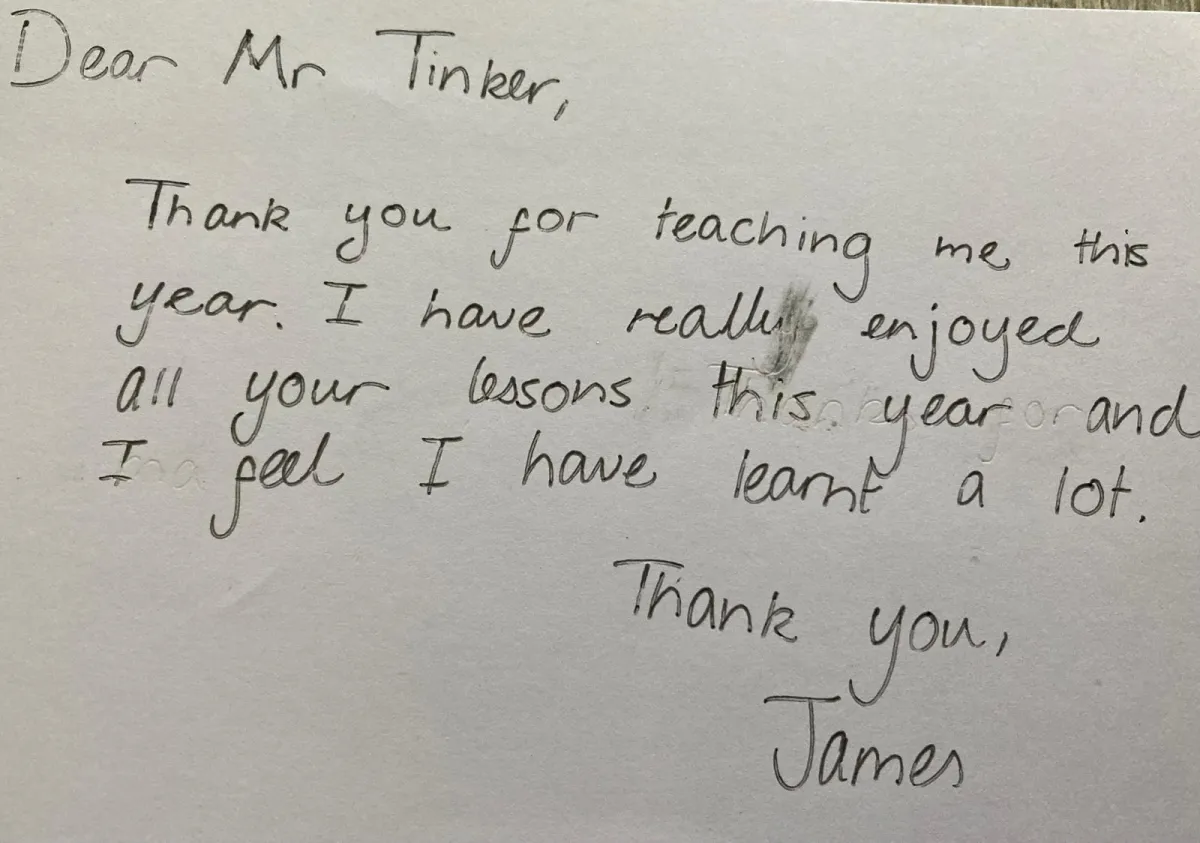 Dear Mr Tinker,
Thank you for teaching me this
year. I have really enjoyed
all your lessons this year and
I feel I have learnt a lot.
Thank you,
James